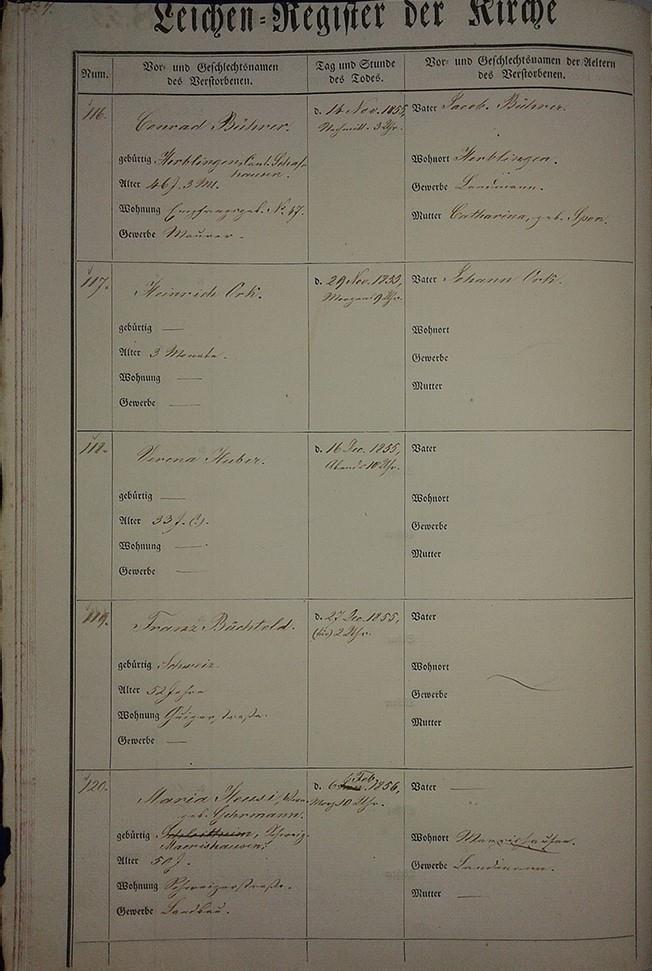 Leichen-Register der Kirche
Num.
Vor- und Geschlechtsnamen
des Verstorbenen.
Tag und Stunde
des Todes.
Vor- und Geschlechtsnamen der Aeltern
des Verstorbenen.
116.
Conrad Bührer.
gebürtig Herblingen, Cant. Schaf-
hausen.
Alter 46 J. 3 M.
Wohnung Empfangsgeb. N. 47.
Gewerbe Maurer.
d. 14 Nov. 1855,
Nachmitt. 3 Uhr.
Vater Jacob Bührer.
Wohnort Herblingen.
Gewerbe Landmann.
Mutter Catharina, geb.
117.
Heinrich Ork.
gebürtig —
Alter 3 Monate.
Wohnung —
Gewerbe —
d. 29 Nov. 1855,
Morgens 9 Uhr.
Vater Johann Ork.
Wohnort
Gewerbe
Mutter
118.
Verena Huber.
gebürtig —
Alter 33 J. (?).
Wohnung —
Gewerbe —
d. 16 Dec. 1855,
Abends 10 Uhr.
Vater
Wohnort
Gewerbe
Mutter
119.
Franz Büchtold.
gebürtig Schweiz
Alter 52 Jahre
Wohnung
Gewerbe —
d. 27 Dec. 1855,
2 Uhr.
Vater
Wohnort
Gewerbe
Mutter
120.
Maria Heusi,
geb. Gehrmann.
gebürtig Schleitheim, Schweiz
Maerishausen.
Alter 50 J.
Wohnung Schweizerstraße.
Gewerbe Landbau.
d. 6 Feb. 1856,
Morg. 10 Uhr.
Vater —
Wohnort
Gewerbe Landmann.
Mutter —